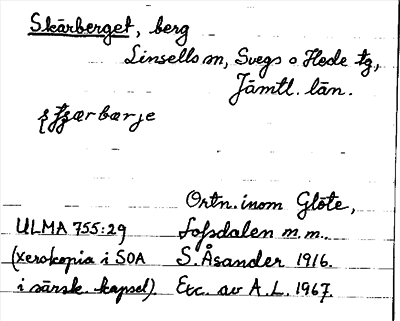 Skärberget, berg
Linsells sn, Svegs o Hede tg,
Jämtl. län.
Ortn. inom Glöte,
Lofsdalen m.m.
ULMA 755:29 S. Åsander 1916.
(xerokopia i SOA Etc. av A.L. 1967.
i särsk. kapsel)